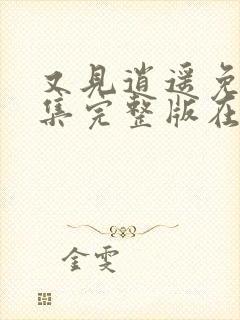 又见逍遥免
集完整版在
金雯